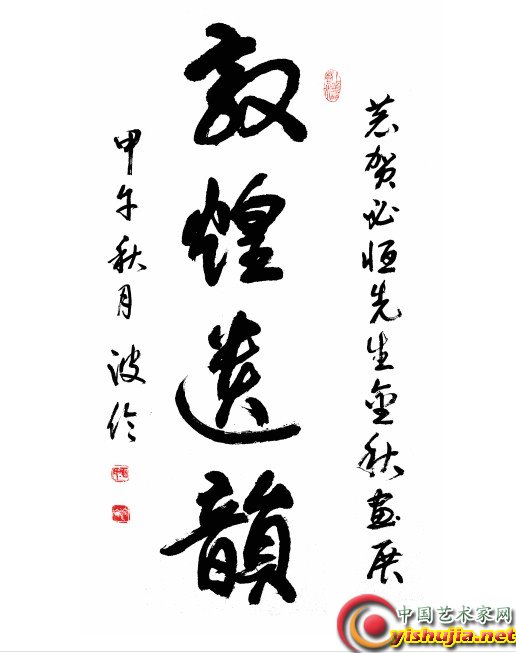 恭贺必恒先生金秋画展
敦煌遗韻
甲午秋月 波伦
中国艺术家网
yishujia.net